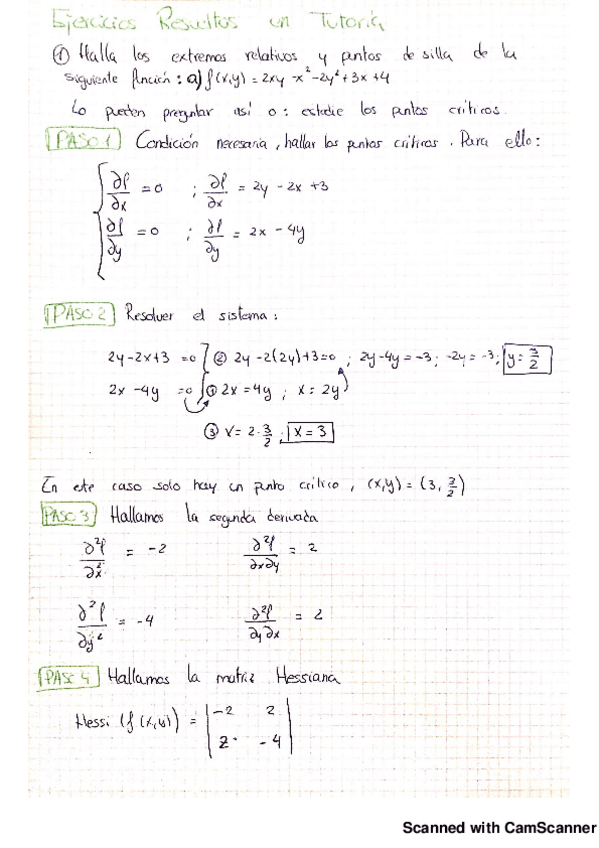 Ejercicios Resueltos en Tutoría
① Halla los extremos relativos y puntos de silla de la
siguiente función: a) f(x,y) = 2xy - x² - 2y² + 3x + 4
Lo pueden preguntar así o: estudie los puntos críticos.
PASO 1 Condición necesaria, hallar los puntos críticos. Para ello:
∂f/∂x = 0 ; ∂f/∂x = 2y - 2x + 3
∂f/∂y = 0 ; ∂f/∂y = 2x - 4y
PASO 2 Resolver el sistema:
2y - 2x + 3 = 0 ② 2y - 2(2y) + 3 = 0 ; 2y - 4y = -3 ; -2y = -3 ; y = 3/2
2x - 4y = 0 ① 2x = 4y ; x = 2y
③ x = 2 · 3/2 ; x = 3
En este caso solo hay un punto crítico, (x,y) = (3, 3/2)
PASO 3 Hallamos la segunda derivada
∂²f/∂x² = -2 ∂²f/∂x∂y = 2
∂²f/∂y² = -4 ∂²f/∂y∂x = 2
PASO 4 Hallamos la matriz Hessiana
Hessi (f(x,y)) = | -2 2 |
| 2 -4 |
Scanned with CamScanner